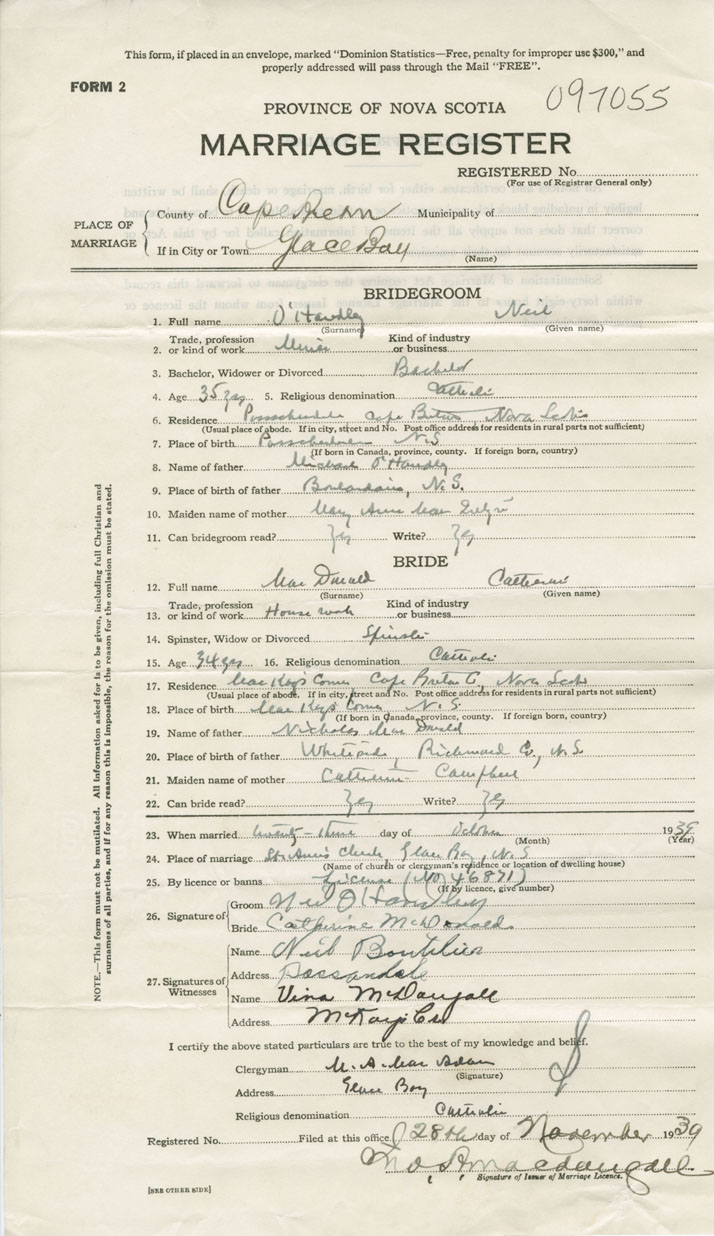 This form, if placed in an envelope, marked "Dominion Statistics—Free, penalty for improper use $300," and
properly addressed will pass through the Mail "FREE".
FORM 2
097055
PROVINCE OF NOVA SCOTIA
MARRIAGE REGISTER
REGISTERED No.
(For use of Registrar General only)
PLACE OF MARRIAGE
County of Cape Breton Municipality of
If in City or Town Glace Bay
(Name)
BRIDEGROOM
1. Full name O'Handley Neil
(Surname) (Given name)
2. Trade, profession or kind of work Miner Kind of industry or business
3. Bachelor, Widower or Divorced Bachelor
4. Age 35 yrs 5. Religious denomination Catholic
6. Residence Passchendaele Cape Breton Nova Scotia
(Usual place of abode. If in city, street and No. Post office address for residents in rural parts not sufficient)
7. Place of birth Passchendaele N.S
(If born in Canada, province, county. If foreign born, country)
8. Name of father Michael O'Handley
9. Place of birth of father Boulardarie, N.S.
10. Maiden name of mother Mary Ann Mac
11. Can bridegroom read? Yes Write? Yes
BRIDE
12. Full name Mac Donald Catherine
(Surname) (Given name)
13. Trade, profession or kind of work House work Kind of industry or business
14. Spinster, Widow or Divorced Spinster
15. Age 34 yrs 16. Religious denomination Catholic
17. Residence Mac Kay's Corner Cape Breton Co, Nova Scotia
(Usual place of abode. If in city, street and No. Post office address for residents in rural parts not sufficient)
18. Place of birth Mac Kay's Corner N.S.
(If born in Canada, province, county. If foreign born, country)
19. Name of father Nicholas Mac Donald
20. Place of birth of father Whiteside, Richmond Co, N.S
21. Maiden name of mother Catherine Campbell
22. Can bride read? Yes Write? Yes
23. When married twenty-three day of October 1939
(Month) (Year)
24. Place of marriage St. Ann's Church Glace Bay, N.S
(Name of church or clergyman's residence or location of dwelling house)
25. By licence or banns License (No 46871)
(If by licence, give number)
26. Signature of
Groom Neil O'Handley
Bride Catherine McDonald
27. Signatures of Witnesses
Name Neil Boutilier
Address
Name Vina McDougall
Address McKay's Cor
I certify the above stated particulars are true to the best of my knowledge and belief.
Clergyman M. A. Mac Adam
(Signature)
Address Glace Bay
Religious denomination Catholic
Registered No. Filed at this office 28th day of November 1939
Macdougall
Signature of Issuer of Marriage Licence.
[SEE OTHER SIDE]
NOTE.—This form must not be mutilated. All information asked for is to be given, including full Christian and
surnames of all parties, and if for any reason this is impossible, the reason for the omission must be stated.